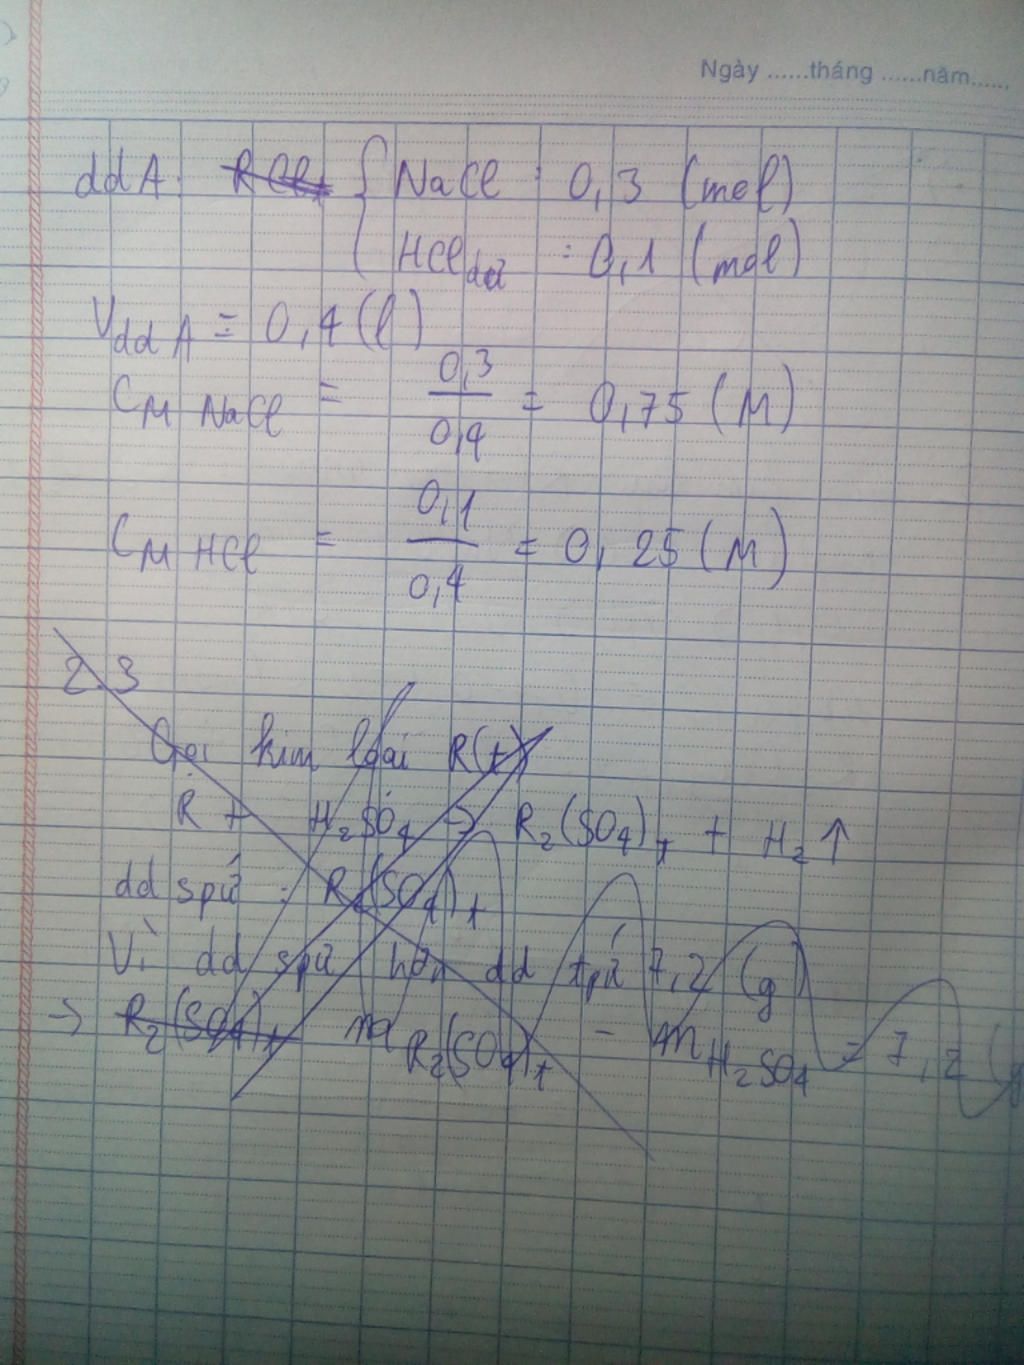 Ngày ......tháng ......năm......
ddA: RClt { NaCl : 0,3 (mol)
HCl dư : 0,1 (mol)
V dd A = 0,4 (l)
CM NaCl = 0,3/0,4 = 0,75 (M)
CM HCl = 0,1/0,4 = 0,25 (M)
2.3
Gọi kim loại R(t)
R + H2SO4 → R2(SO4)t + H2 ↑
dd spứ : R2(SO4)t
Vì dd spứ hơn dd tpứ 7,2 (g)
→ R2(SO4)t m R2(SO4)t - m H2SO4 = 7,2 (g